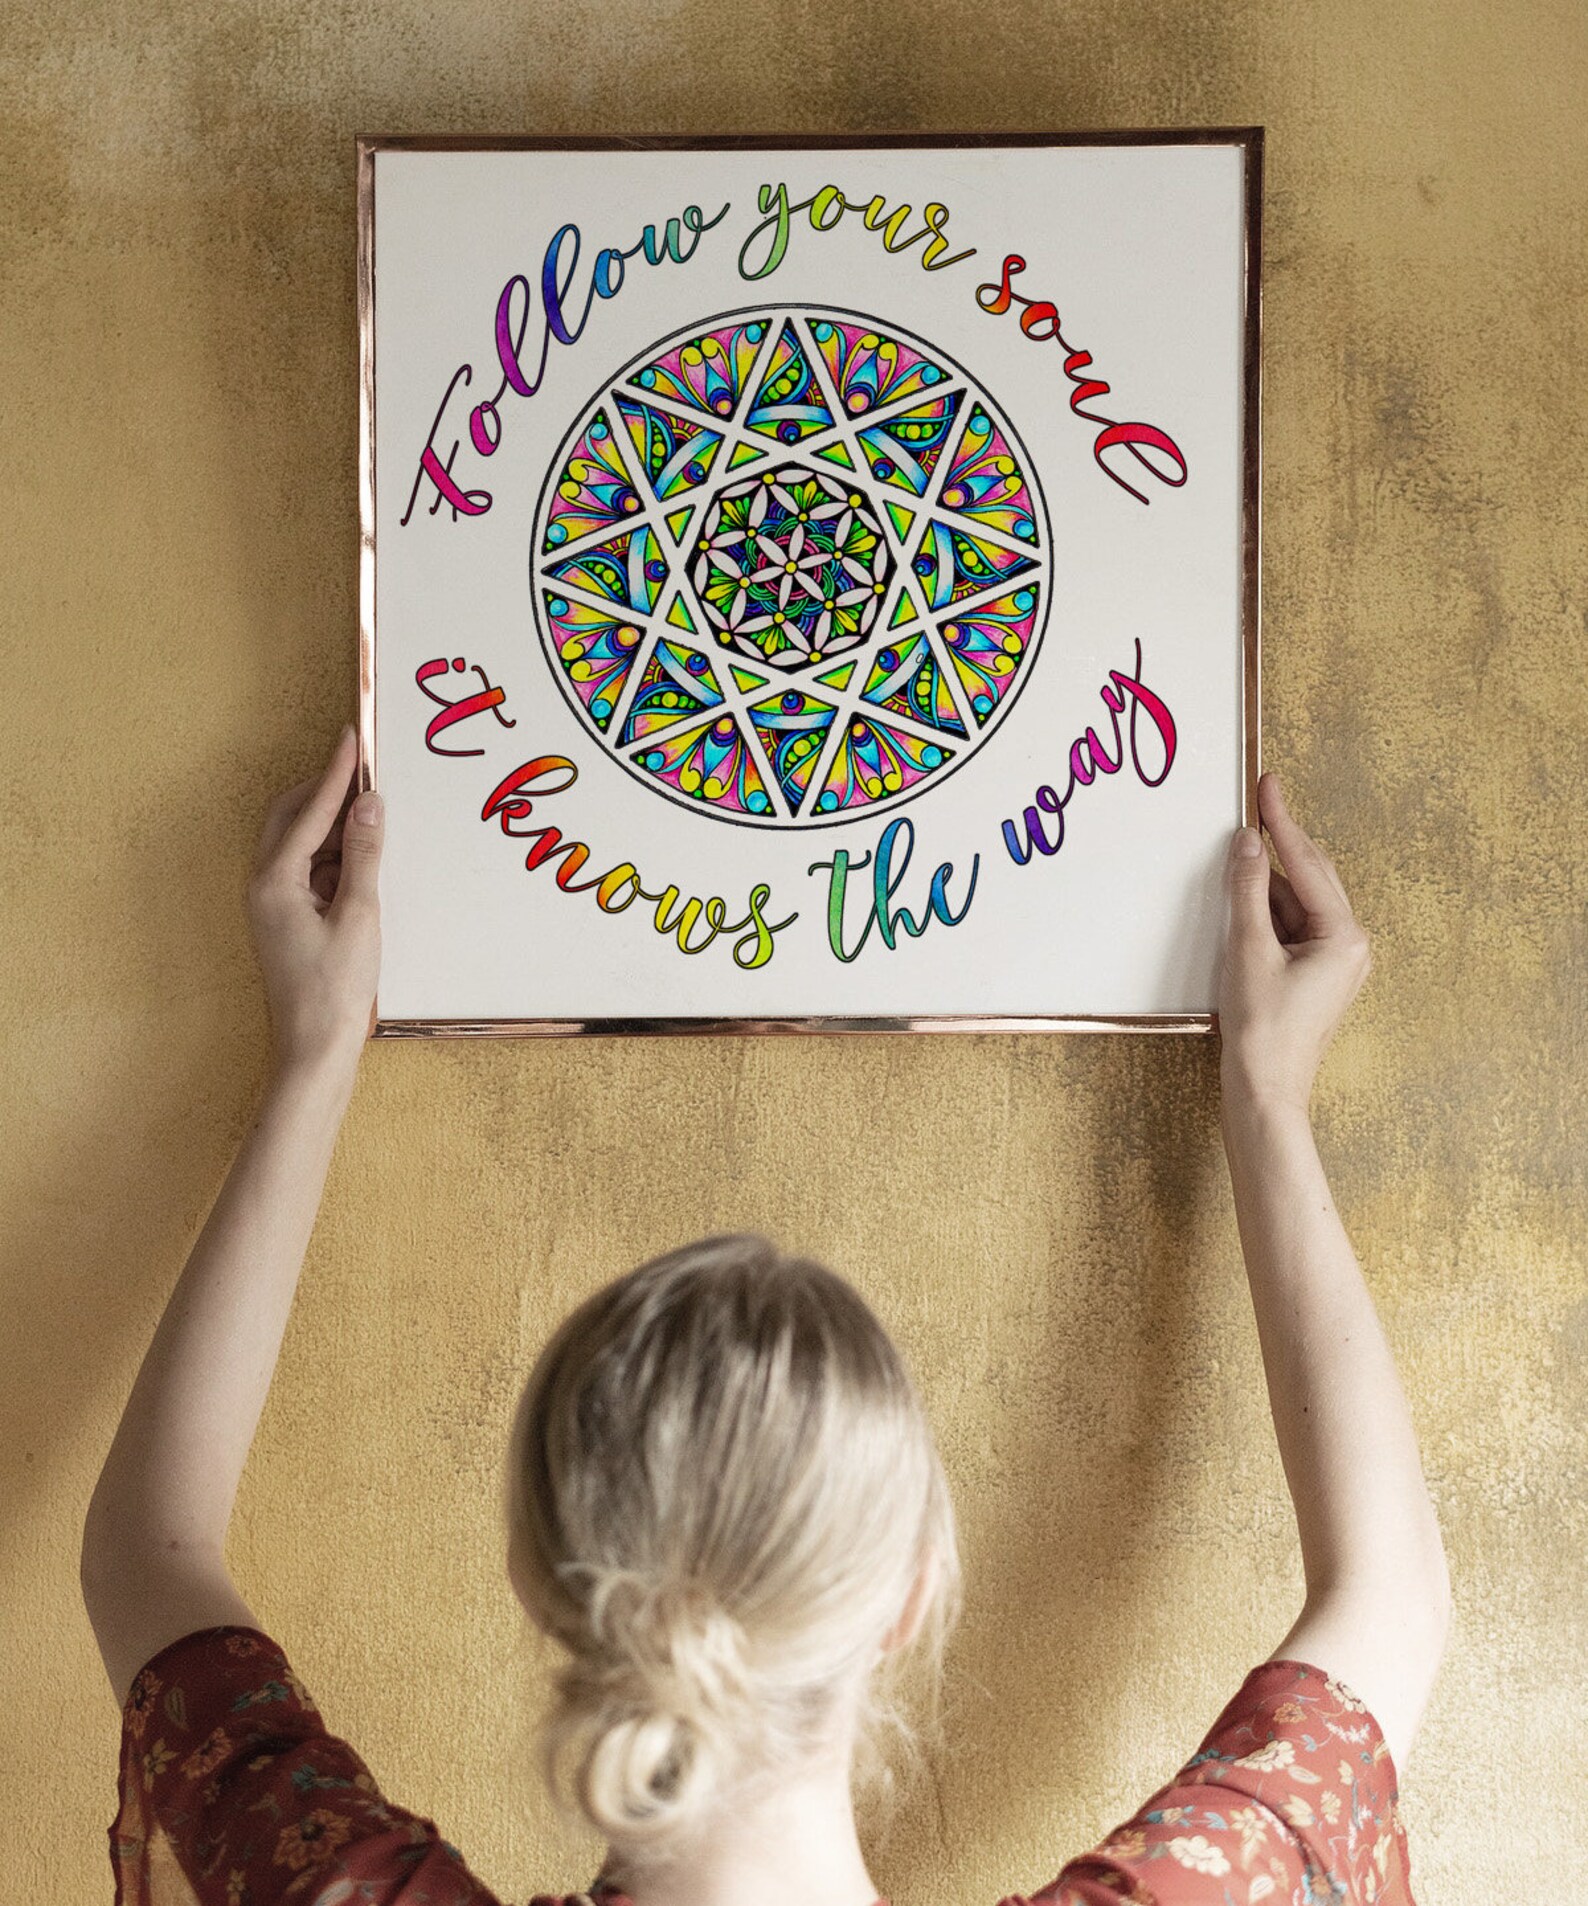 Follow your soul
it knows the way